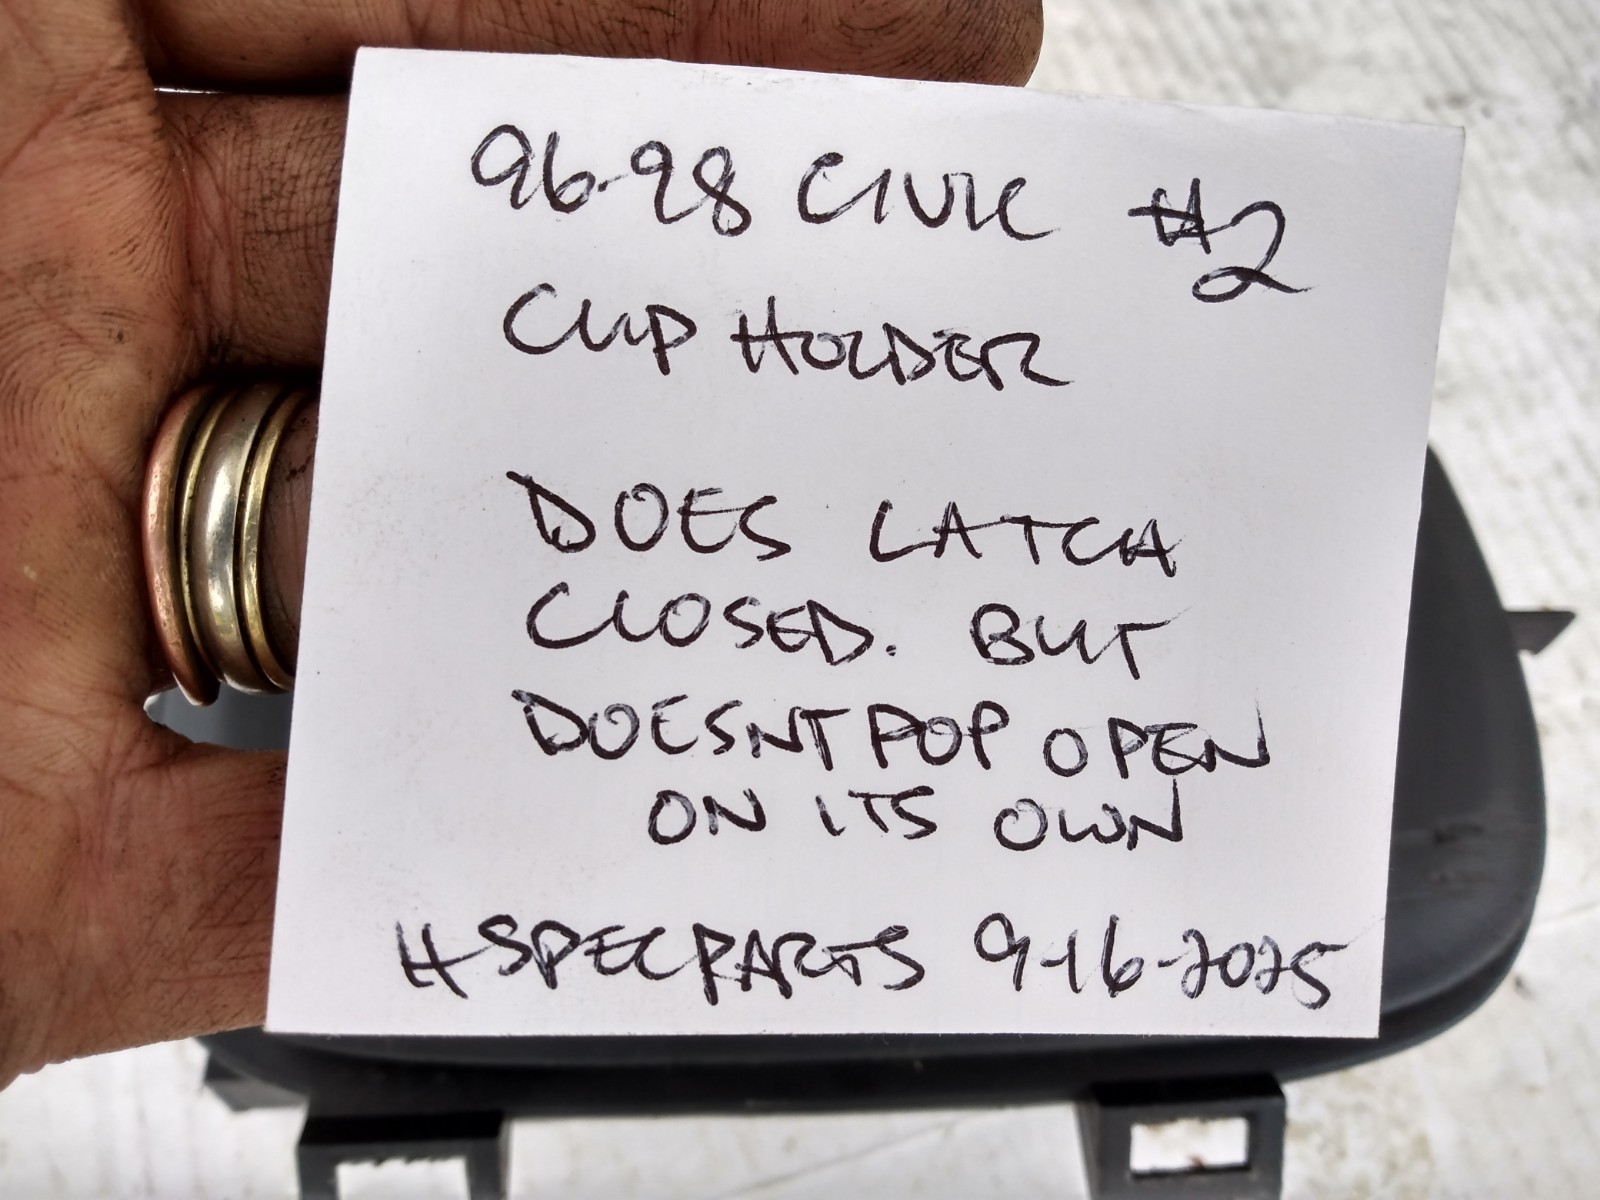 96-98 CIVIC #2
CUP HOLDER
DOES LATCH
CLOSED. BUT
DOESNT POP OPEN
ON ITS OWN
HSPECPARTS 9-16-2025